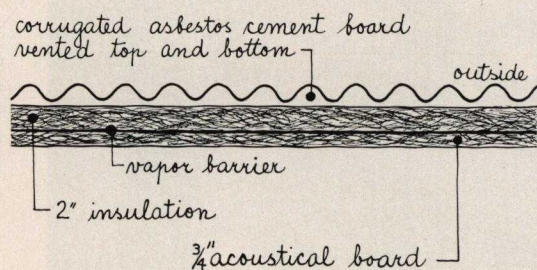 corrugated asbestos cement board
vented top and bottom
outside
vapor barrier
2" insulation
3/4" acoustical board